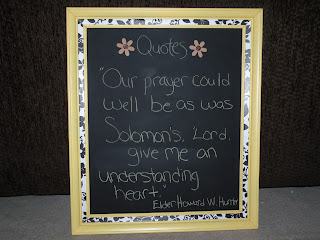 Quotes
"Our prayer could
well be as was
Solomon's, 'Lord,
give me an
understanding
heart.'"
Elder Howard W. Hunter